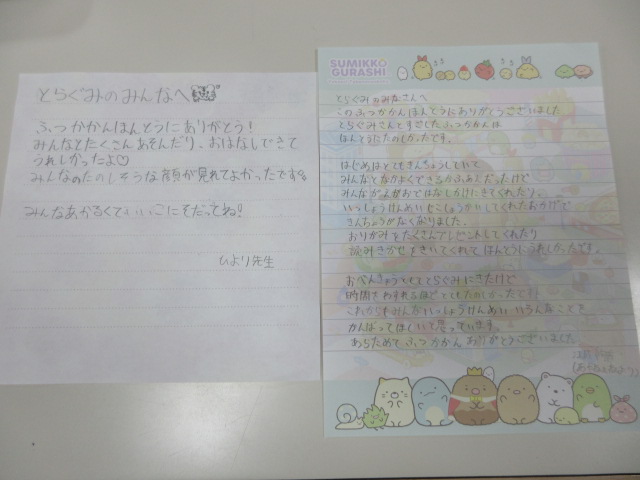 とらぐみのみんなへ
ふつかかんほんとうにありがとう!
みんなとたくさんあそんだり、おはなしできて
うれしかったよ♡
みんなのたのしそうな顔が見れてよかったです
みんなあかるくていいこにそだってね!
ひより先生
SUMIKKO
GURASHI
とらぐみのみなさんへ
このふつかかんほんとうにありがとうございました
とらぐみさんとすごしたふつかかんは
ほんとうにたのしかったです。
はじめはとてもきんちょうしていて
みんなとなかよくできるかふあんだったけど
みんながえがおではなしかけにきてくれたり、
いっしょうけんめいじこしょうかいしてくれたおかげで
きんちょうがなくなりました。
おりがみをたくさんプレゼントしてくれたり
読みきかせをきいてくれてほんとうにうれしかったです。
おべんきょうとしてとらぐみにきたけど
時間をわすれるほどとてもたのしかったです!
これからもみんないっしょうけんめいいろんなことを
がんばってほしいと思っています。
あらためてふつかかんありがとうございました